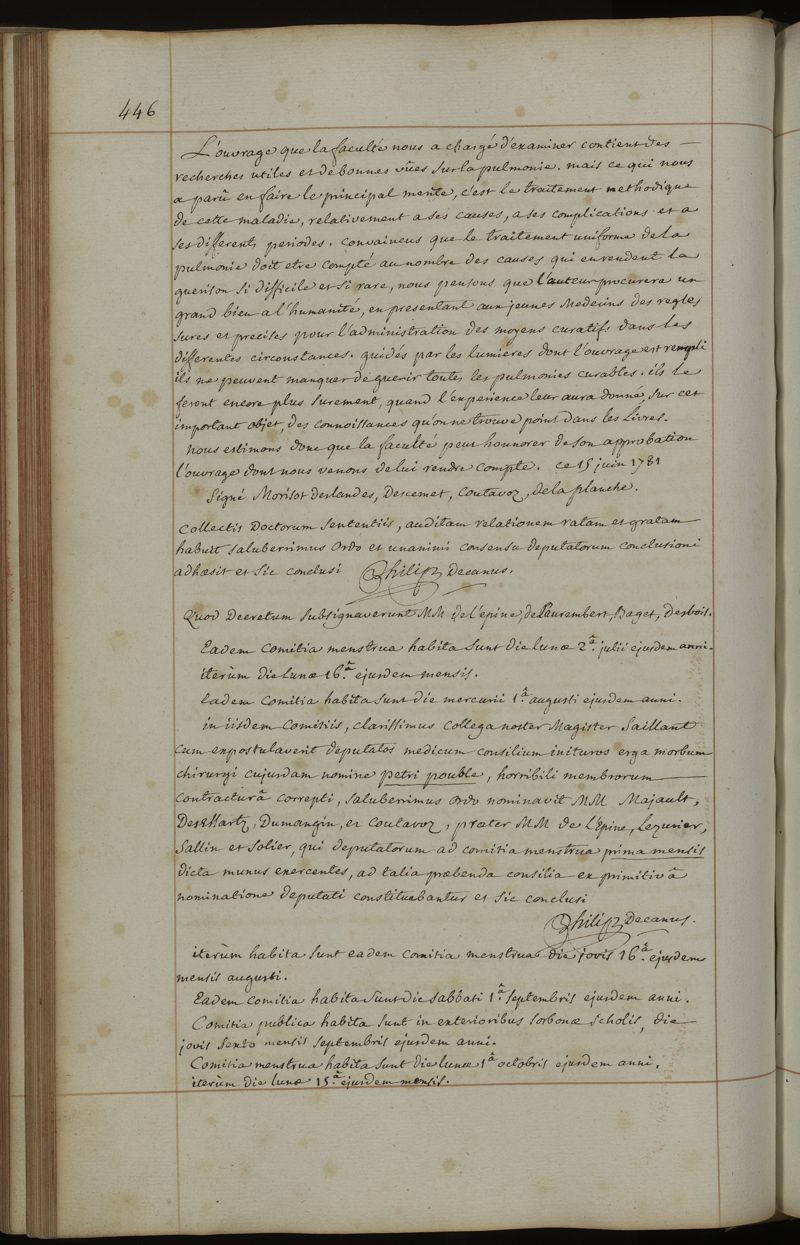 446
L'ouvrage que la faculté nous a chargé d'examiner contient des —
recherches utiles et de bonnes vûes sur la pulmonie. mais ce qui nous
a parû en faire le principal merite, c'est le traitement methodique
de cette maladie, relativement a ses causes, a ses complications et a
ses differents periodes. Convaincus que le traitement uniforme de la
pulmonie doit etre compté au nombre des causes qui en rendent la
guerison si difficile et si rare, nous pensons que l'auteur procurera un
grand bien a l'humanité, en presentant aux jeunes Medecins des regles
sures et precises pour l'administration des moyens curatifs dans les
differentes circonstances. guidés par les lumieres dont l'ouvrage est rempli
ils ne peuvent manquer de guerir toutes les pulmonies curables. ils le
feront encore plus surement, quand l'experience leur aura donné, sur cet
important objet, des connoissances qu'on ne trouve point dans les Livres.
Nous estimons donc que la faculté peut honnorer de son approbation
l'ouvrage dont nous venons de lui rendre compte. ce 15 juin 1781
Signé Morisot Deslandes, Descemet, Coutavoz, de la planche.
Collectis Doctorum sententiis, auditam relationem ratam et gratam
habuit saluberrimus Ordo et unanimi consensu deputatorum conclusioni
adhæsit et sic conclusi Philip Decanus.
Quod Decretum subsignaverunt MM de l'epine, de Laurembert, Baget, Desbois.
Eadem Comitia menstrua habita sunt die lunæ 2.ª julii ejusdem anni.
iterùm die Lunæ 16.ª ejusdem mensis.
Eadem comitia habita sunt die mercurii 1.ª augusti ejusdem anni.
in iisdem Comitiis, clarissimus collega noster Magister Saillant
cum expostulaverit deputatos medicum consilium inituros erga morbum
chirurgi cujusdam nomine petri pouble, horribili membrorum —
contracturâ correpti, saluberrimus ordo nominavit MM Majault,
DesEssartz, Dumangin, et Coutavoz, præter MM de L'Epine, Lezurier,
Sallin et Solier, qui deputatorum ad comitia menstrua prima mensis
dicta munus exercentes, ad talia præbenda consilia ex primitivâ
nominatione deputati constituebantur et sic conclusi
Philip Decanus.
iterùm habita sunt eadem comitia menstrua die jovis 16.ª ejusdem
mensis augusti.
Eadem comitia habita sunt die sabbati 1.ª septembris ejusdem anni.
Comitia publica habita sunt in exterioribus sorbonæ scholis, die —
jovis sexto mensis septembris ejusdem anni.
Comitia menstrua habita sunt die lunæ 1ª octobris ejusdem anni.
iterùm die lunæ 15.ª ejusdem mensis.